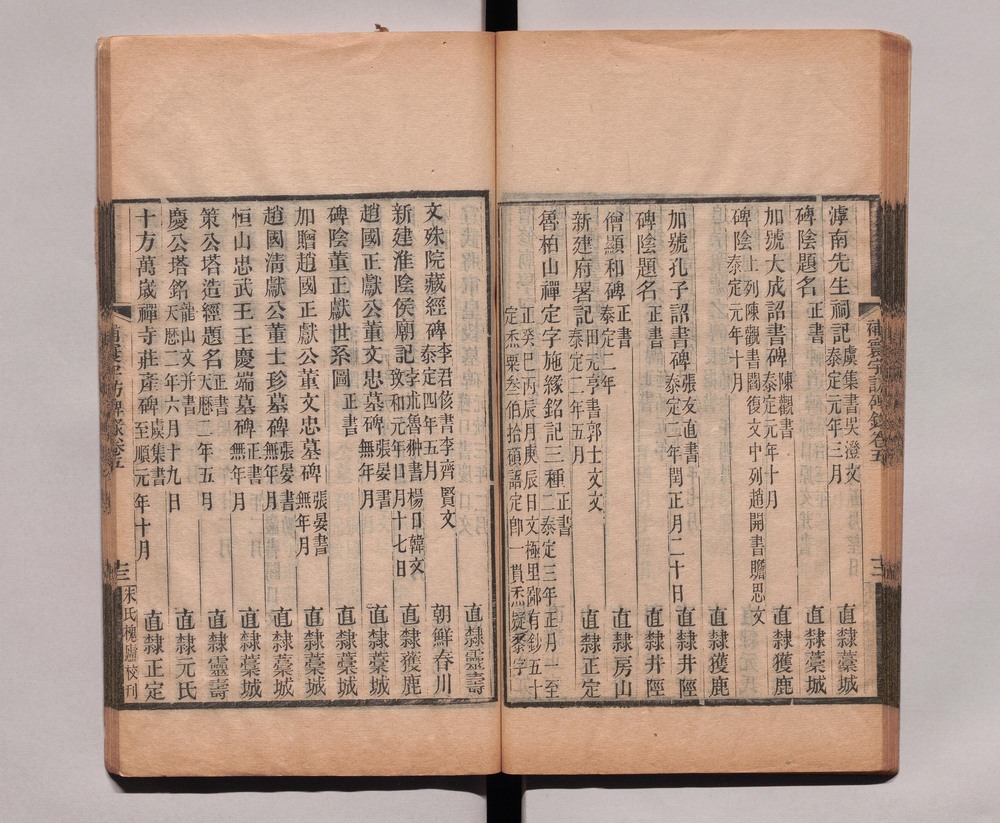 滹南先生祠記 虞集書吳澄文 泰定元年三月 直隸藁城
碑陰題名 正書 直隸藁城
加號大成詔書碑 陳觀書 泰定元年十月 直隸獲鹿
碑陰 上列陳觀書閻復文中列趙開書贍思文 泰定元年十月 直隸獲鹿
加號孔子詔書碑 張友直書 泰定二年閏正月二十日 直隸井陘
碑陰題名 正書 直隸井陘
僧顯和碑 正書 泰定二年 直隸房山
新建府署記 田元亨書郭士文文 泰定二年五月 直隸正定
魯柏山禪定字施緣銘記三種 正書 二泰定三年正月一至
正癸巳丙辰月庚辰日文極里鄙有鈔五十
定燕粟叁伯拾碩語定即一貫
直隸靈壽
文殊院藏經碑 李君侅書李齊賢文 泰定四年五月 朝鮮春川
新建淮陰侯廟記 孛朮魯翀書楊口韓文 致和元年口月十七日 直隸獲鹿
趙國正獻公董文忠墓碑 張晏書 無年月 直隸藁城
碑陰董正獻世系圖 正書 直隸藁城
加贈趙國正獻公董文忠墓碑 張晏書 無年月 直隸藁城
趙國清獻公董士珍墓碑 張晏書 無年月 直隸藁城
恒山忠武王王慶端墓碑 正書 無年月 直隸藁城
策公塔造經題名 正書 天曆二年五月 直隸靈壽
慶公塔銘 龍山文并書 天曆二年六月十九日 直隸元氏
十方萬歲禪寺莊產碑 虞集書 至順元年十月 直隸正定
補寰宇訪碑錄卷五
十三
朱氏槐廬校刊